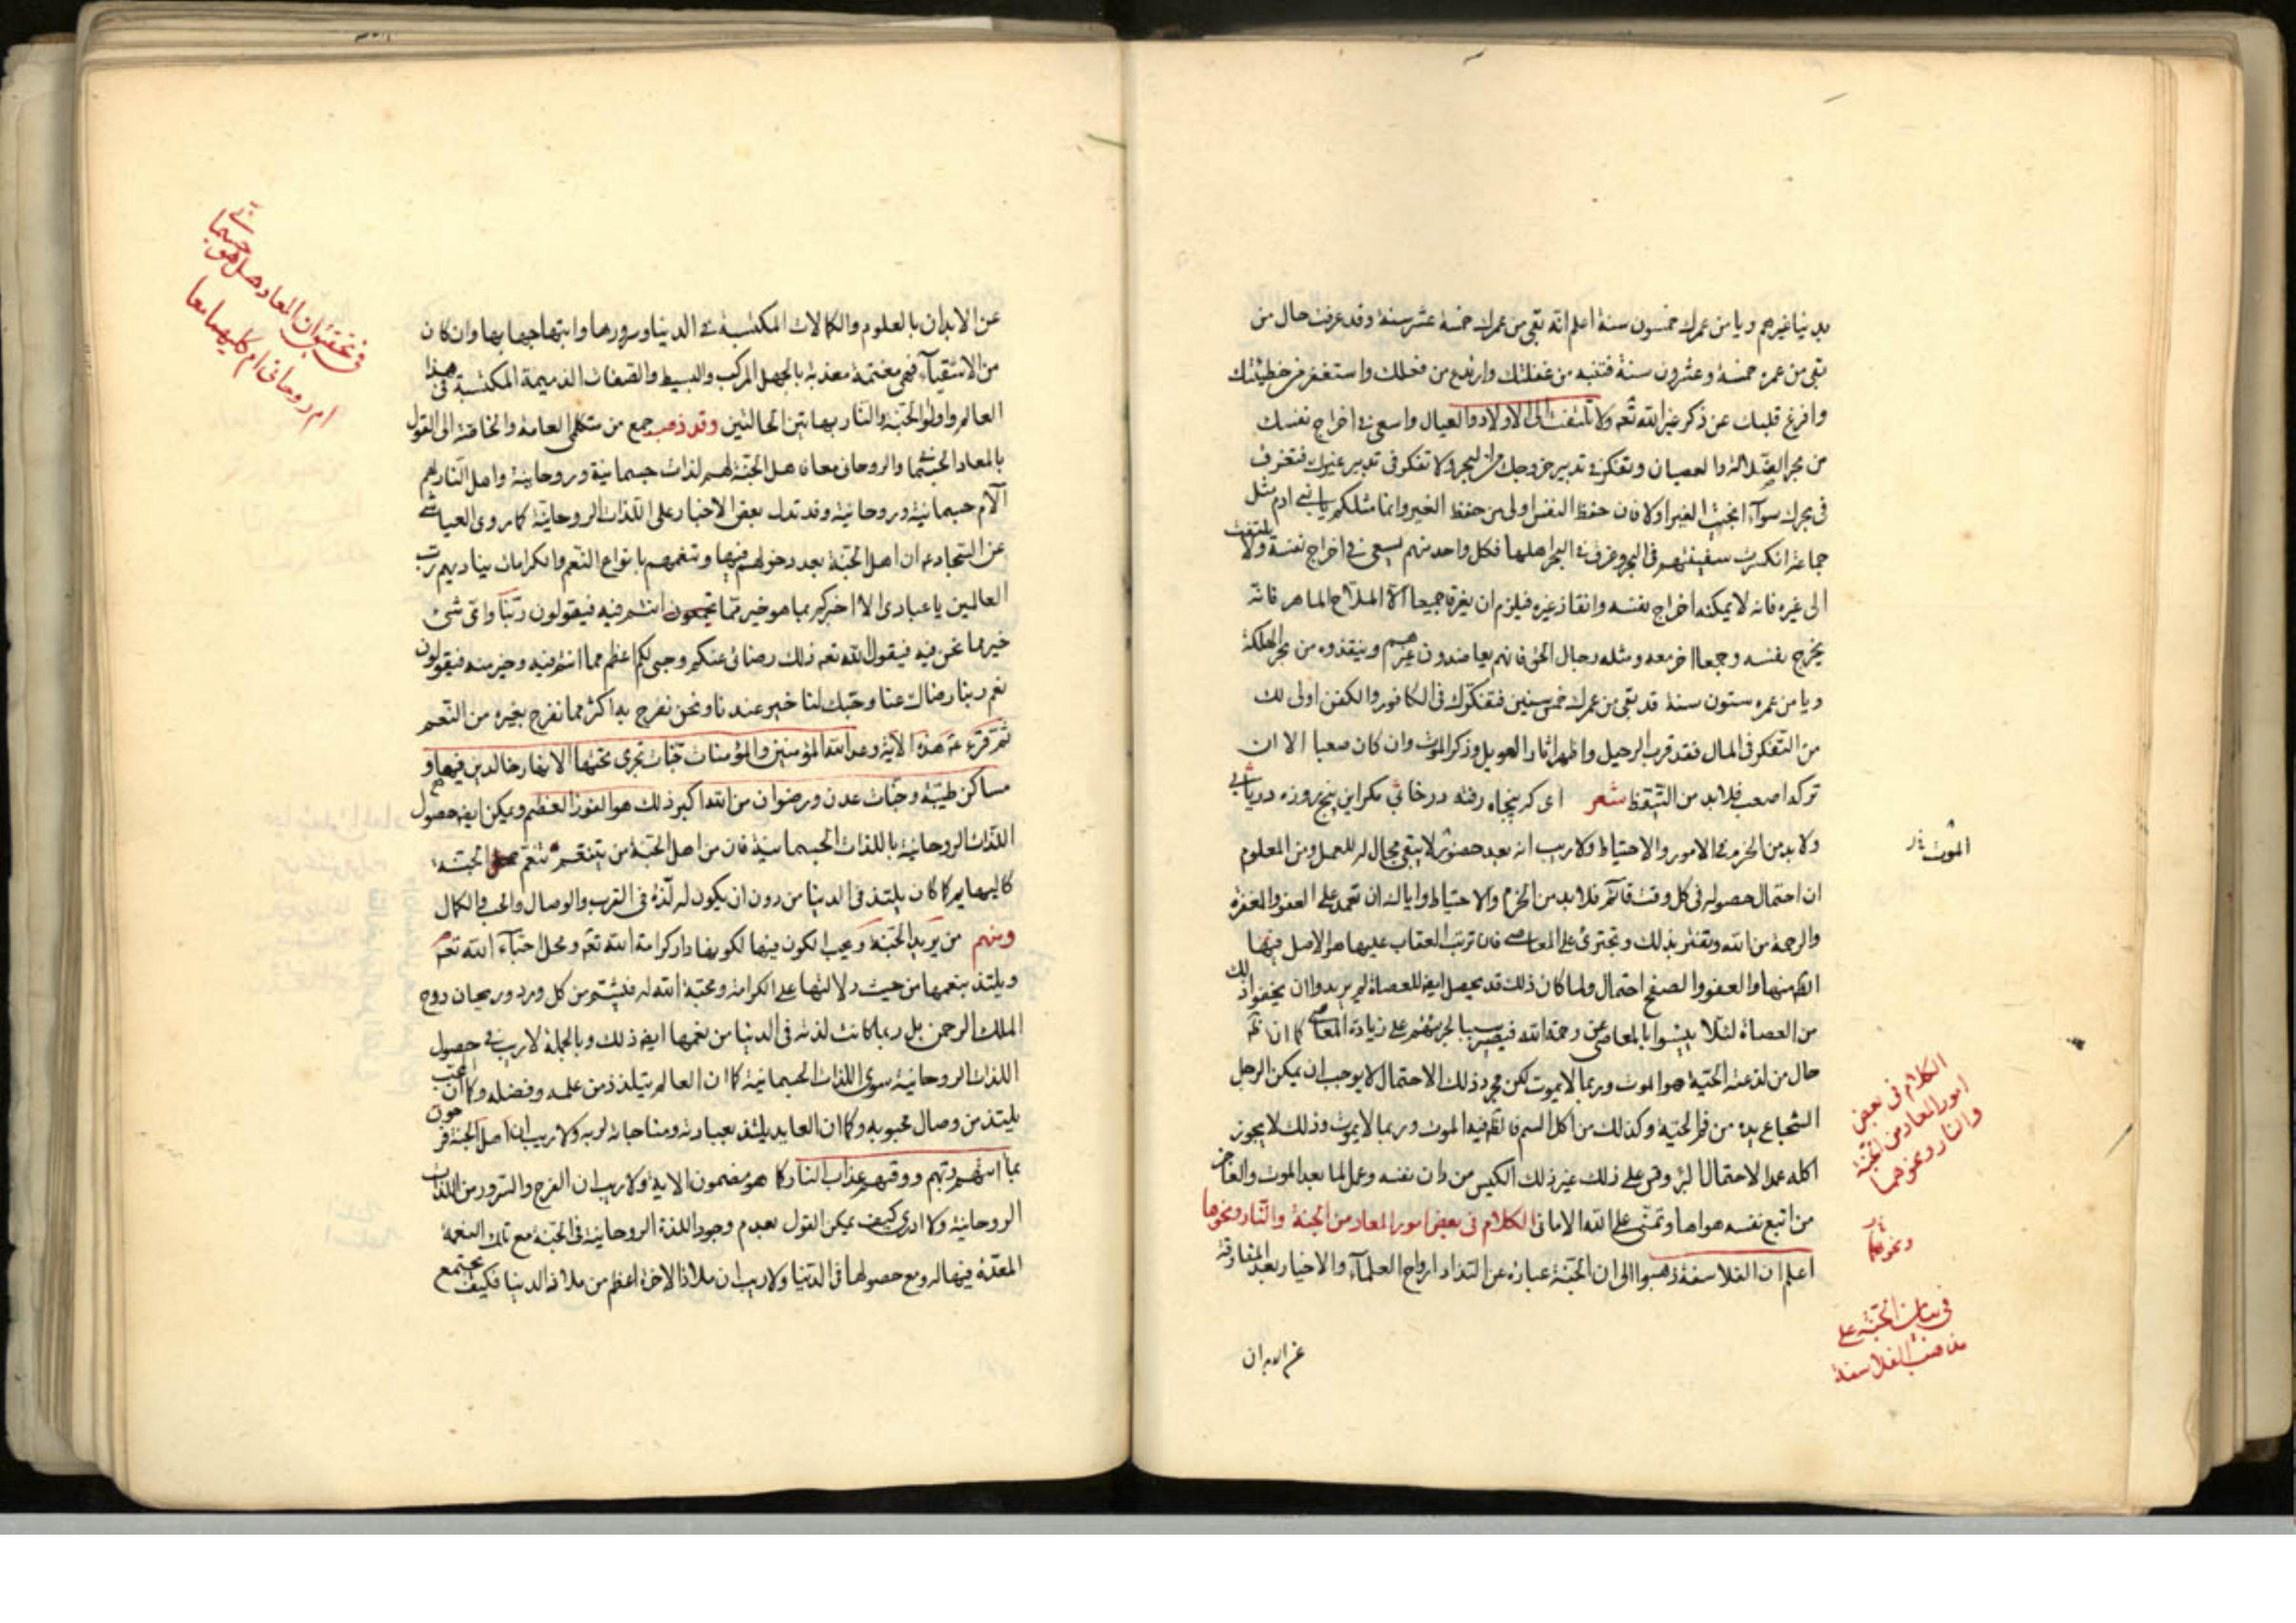 بدنياغيرهم ويا من عمرك خمسون سنة اعلم انه بقى من عمرك خمسة عشر سنة وقد عرفت حال من
بقى من عمره خمسة وعشرون سنة فتنبه من غفلتك وارتدع من فعلك واستغفر من خطيئتك
وافرغ قلبك عن ذكر غير الله تعه ولا تلتفت الى الاولاد والعيال واسعى فى اخراج نفسك
من بحر الضلالة والعصيان وتفكر فى تدبير خروجك من البحر ولا تفكر فى تدبير غيرك فتغرق
فى بحرك سواء انجيت الغير اولا فان حفظ النفس اولى من حفظ الغير وانما مثلكم يا بنى ادم مثل
جماعة انكسرت سفينتهم فى البحر وغرق فى البحر اهلها فكل واحد منهم يسعى فى اخراج نفسه ولا يلتفت
الى غيره فانه لا يمكنه اخراج نفسه وانقاذ غيره فيلزم ان يغرقا جميعا الا الملاح الماهر فانه
يخرج نفسه وجمعا اخر معه ومثله رجال الحق فانهم يعاضدون غيرهم وينقذوه من بحر الهلكة
ويا من عمره ستون سنة قد بقى من عمرك خمس سنين فتفكرك فى الكافور والكفن اولى لك
من التفكر فى المال فقد قرب الرحيل واظهر اثار العويل وذكر الموت وان كان صعبا الا ان
تركه اصعب فلا بد من التيقظ شعر اى كه پنجاه رفته در خابى مكر اين پنج روزه دريابى
ولا بد من الحزم فى الامور والاحتياط ولا ريب انه بعد حضور لا يبقى مجال له للعمل ومن المعلوم
الموت
ان احتمال حصوله فى كل وقت قائم فلا بد من الحزم والاحتياط واياك ان تعمد على العفو والمغفرة
والرحمة من الله وتغتر بذلك وتجترئ على المعاصى فان ترتب العقاب عليها هو الاصل فيها
منها والعفو والصفح احتمال ولما كان ذلك قد يحصل ايضا للعصاة لم يريدوا ان يخفوا ذلك
من العصاة لئلا يئسوا بالمعاصى عن رحمة الله فيصير سببا لجرئتهم على زيادة المعاصى كما ان
حال من لدغته الحية هو الموت وربما لا يموت لكن مجرد ذلك الاحتمال لا يوجب ان يمكن الرجل
الشجاع يده من فم الحية وكذلك من اكل السم فانه فيه الموت وربما لا يموت وذلك لا يجوز
اكله عمدا لاحتمال البرء وقس على ذلك غير ذلك الكيس من دان نفسه وعمل لما بعد الموت والعاجز
من اتبع نفسه هواها وتمنى على الله الامانى الكلام فى بعض امور المعاد من الجنة والنار ونحوها
اعلم ان الفلاسفة ذهبوا الى ان الجنة عبارة عن التذاد ارواح العلماء والاخيار بعد المفارقة
عن الابدان
الكلام فى بعض
امور المعاد من الجنة
والنار ونحوهما
ونحوهما
فى بيان الجنة على
مذاهب الفلاسفة
فى تحقيق ان المعاد هل هو جسمانى
ام روحانى ام كليهما معا
عن الابدان بالعلوم والكمالات المكتسبة فى الدنيا وسرورها وابتهاجها بها وان كان
من الاشقياء فهى مغتمة معذبة بالجهل المركب والبسيط والصفات الذميمة المكتسبة فى هذا
العالم واولوا الجنة والنار بهاتين الحالتين وقد ذهب جمع من متكلمى العامة والخاصة الى القول
بالمعاد الجسمانى والروحانى معا فاهل الجنة لهم لذات جسمانية وروحانية واهل النار لهم
آلام جسمانية وروحانية وقد تدل بعض الاخبار على اللذات الروحانية كما روى العياشى
عن السجاد ع ان اهل الجنة بعد دخولهم فيها وتنعمهم بانواع النعم والكرامات يناديهم رب
العالمين يا عبادى الا اخبركم بما هو خير مما انتم فيه فيقولون ربنا واى شئ
خير مما نحن فيه فيقول الله تعه ذلك رضائى عنكم وحبى لكم اعظم مما انتم فيه وخير منه فيقولون
نعم ربنا رضاك عنا وحبك لنا خير عندنا ونحن نفرح به اكثر مما نفرح بغيره من النعم
ثم قرء ع هذه الاية وعد الله المؤمنين والمؤمنات جنات تجرى تحتها الانهار خالدين فيها و
مساكن طيبة وجنات عدن ورضوان من الله اكبر ذلك هو الفوز العظيم ويمكن ايضا حصول
اللذات الروحانية باللذات الجسمانية فان من اهل الجنة من يتنعم بنعم الجنة
كالبهايم كما كان يلتذ فى الدنيا من دون ان يكون له لذة فى القرب والوصال والحب والكمال
ومنهم من يريد الجنة ويحب الكون فيها لكونها دار كرامة الله تعه ومحل احباء الله تعه
ويلتذ بنعمها من حيث دلالتها على الكرامة ومحبة الله له فيشتم من كل ورد وريحان روح
الملك الرحمن بل ربما كانت لذته فى الدنيا من نعمها ايضا ذلك وبالجملة لا ريب فى حصول
اللذات الروحانية سوى اللذات الجسمانية كما ان العالم يتلذذ من علمه وفضله وكما ان المحب
يلتذ من وصال محبوبه وكما ان العابد يلتذ بعبادته ومناجاته لربه ولا ريب ان اهل الجنة فرحون
بما اتيهم ربهم ووقيهم عذاب النار كما هو مضمون الاية ولا ريب ان الفرح والسرور من اللذات
الروحانية ولا ادرى كيف يمكن القول بعدم وجود اللذة الروحانية فى الجنة مع تلك النعمة
المعدة فيها له ومع حصولها فى الدنيا ولا ريب ان ملاذ الاخرة اعظم من ملاذ الدنيا فكيف يجتمع